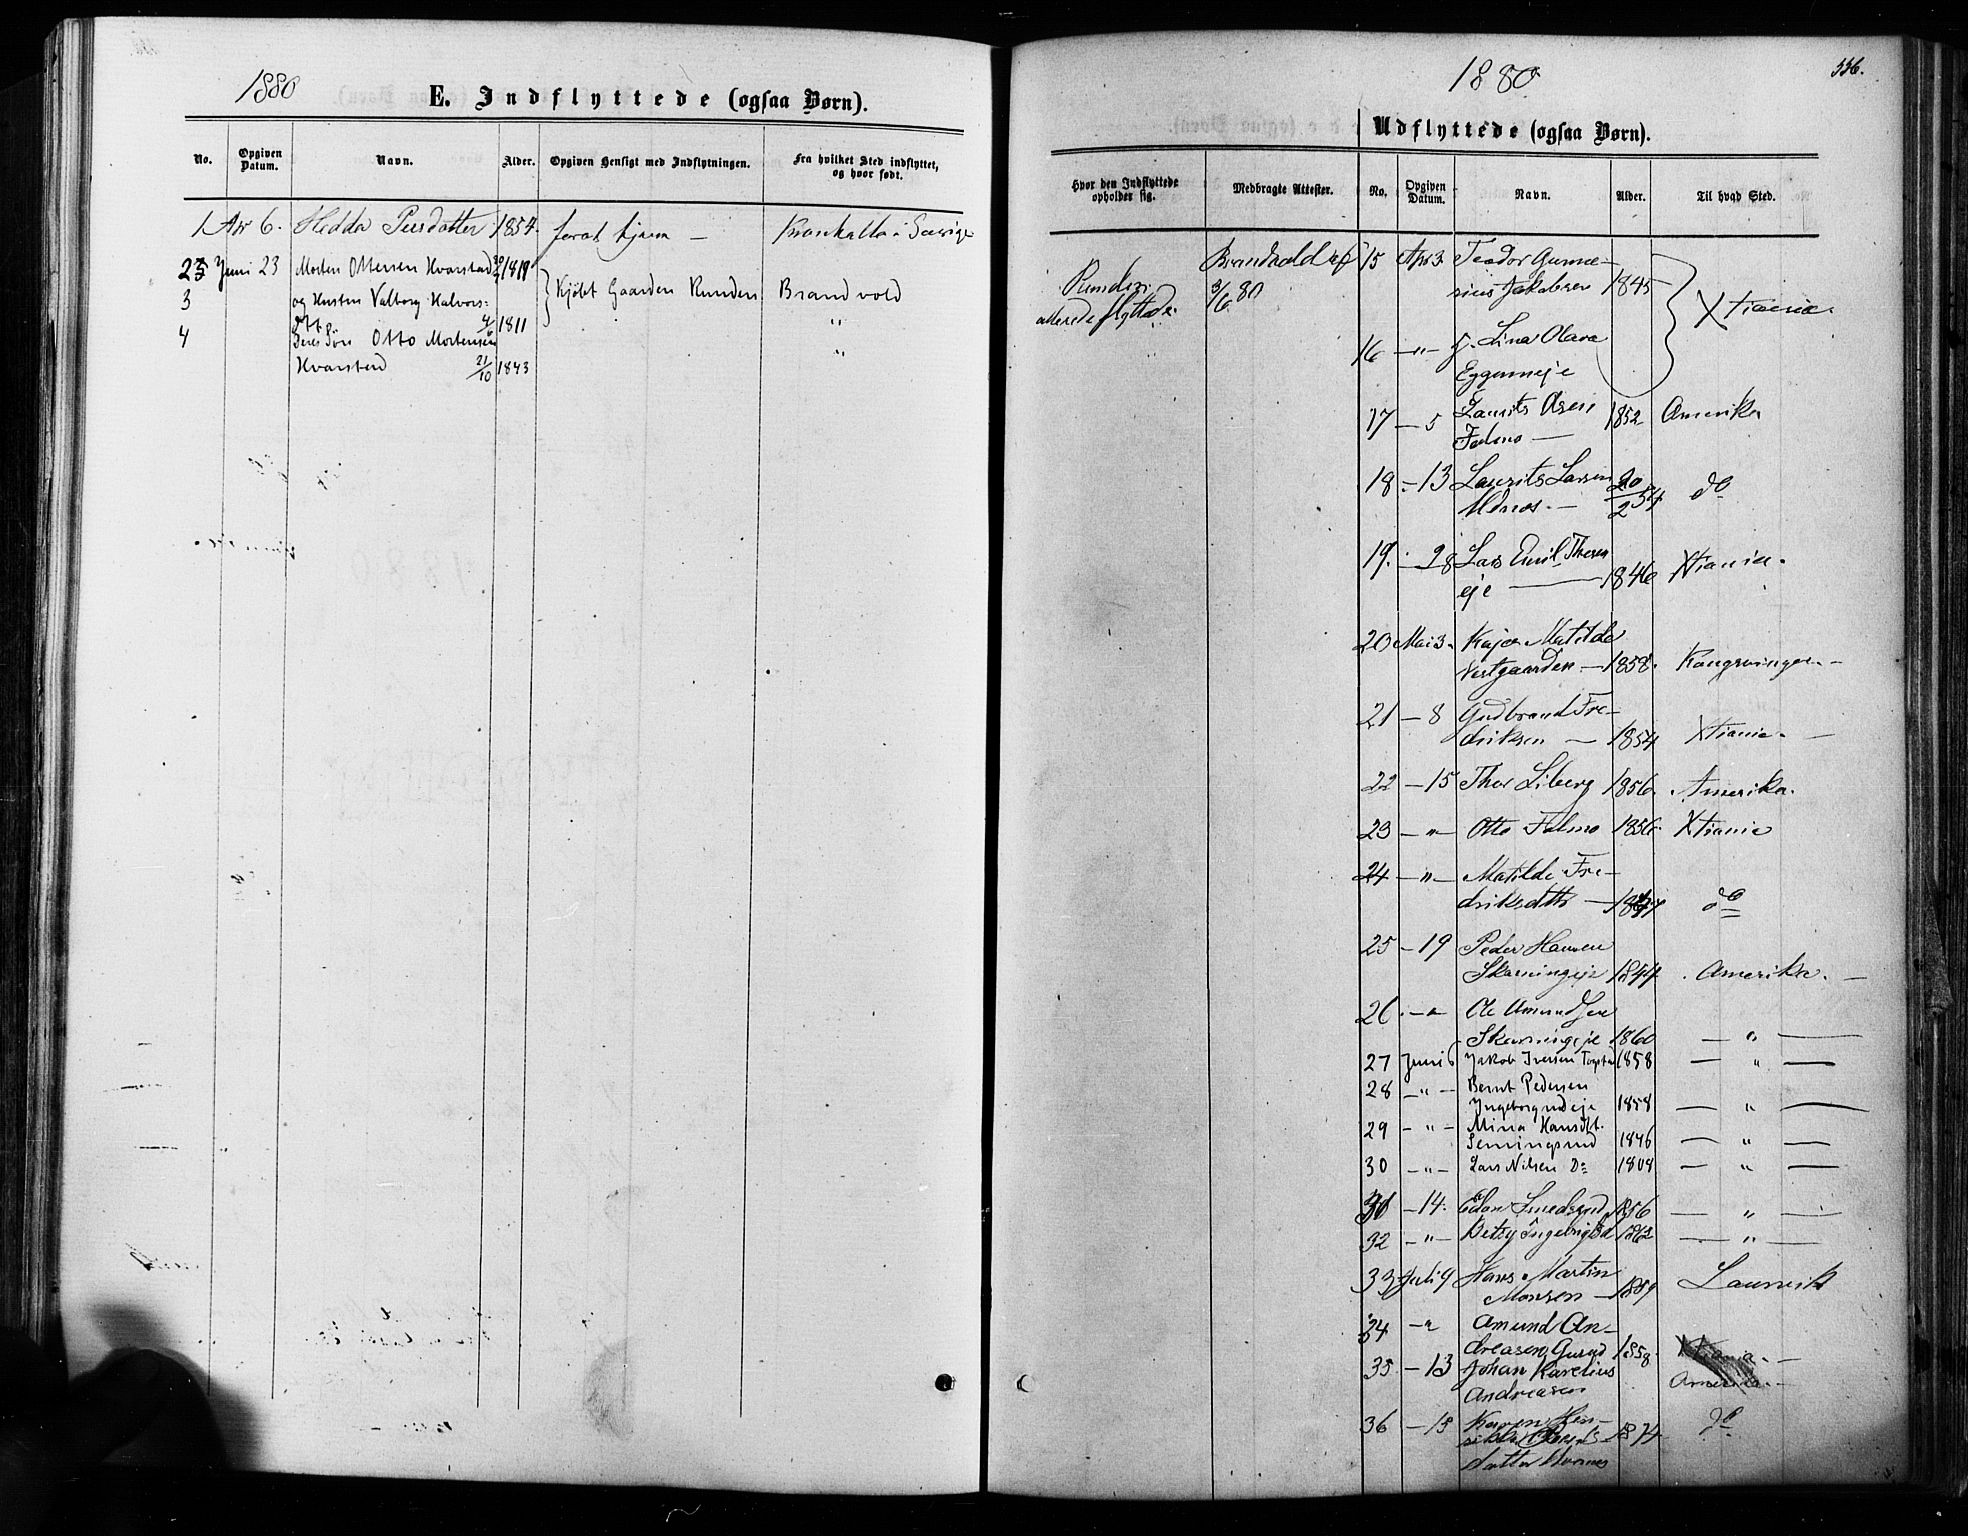 1880
E. Indflyttede (ogsaa Børn).
No. Opgiven Datum. Navn. Alder. Opgiven Hensigt med Indflytningen. Fra hvilket Sted indflyttet, og hvor født.
1 Apr 6. Hedda Persdatter 1854. for at tjene — i Sverige
2 Juni 23 Morten Ottersen Kvarstad 1819
3 og Hustru Valborg Halvors- Kjøbt Gaarden Runden Brandvold
dtt 4/6 1811 "
4 deres Søn Otto Mortensen
Kvarstad 21/10 1843 "
1880
336.
Udflyttede (ogsaa Børn).
Hvor den Indflyttede opholder sig. Medbragte Attester. No. Opgiven Datum. Navn. Alder. Til hvad Sted.
Runden Brandvold af
allerede flyttede. 3/6 80
15 Apr 3. Teodor Gunne-
rius Jakobsen 1845 Xtiania.
16 — " — Lina Olava
Eggenneje
17 — 5 Laurits Olsen 1852 Amerika
Folmo —
18 — 13 Laurits Larsen 20/2 54 do
19. — 28 Lars Emil Thesen
eje — 1846 Xtiania.
20 Mai 3. Kaja Matilde
Vestgaarden — 1858. Kongsvinger. —
21 — 8 Gudbrand Fre-
driksen — 1854 Xtiania. —
22 — 15 Thor Liberg 1856. Amerika.
23 — " — Otto Folmo 1856. Xtiania
24 — " — Matilde Fre-
driksdtt — do
25 — 19 Peder Hansen
Skarningeje 1844. Amerika. —
26 — " Ole Amundsen
Skarningeje 1860 — " —
27 Juni 6 Jakob Iversen 1858 — " —
28 — " — Bernt Pedersen
Ingeborgrudeje 1858 — " —
29 — " — Mina Hansdt.
Semingsrud 1846 — " —
30 — " — Lars Nilsen Do 1808 — " —
31 — 14. Edon Smedsrud 1856 — " —
32 — " — Betsy 1862 — " —
33 Juli 9 Hans Martin
Monsen — 1859 Laurvik
34 — " Amund An-
dreasen 1858. Xtiania. —
35 — 13 Johan Karelius
Andreasen Amerika. —
36 — 15 Karen Hen-
rikke 1874. do
datter